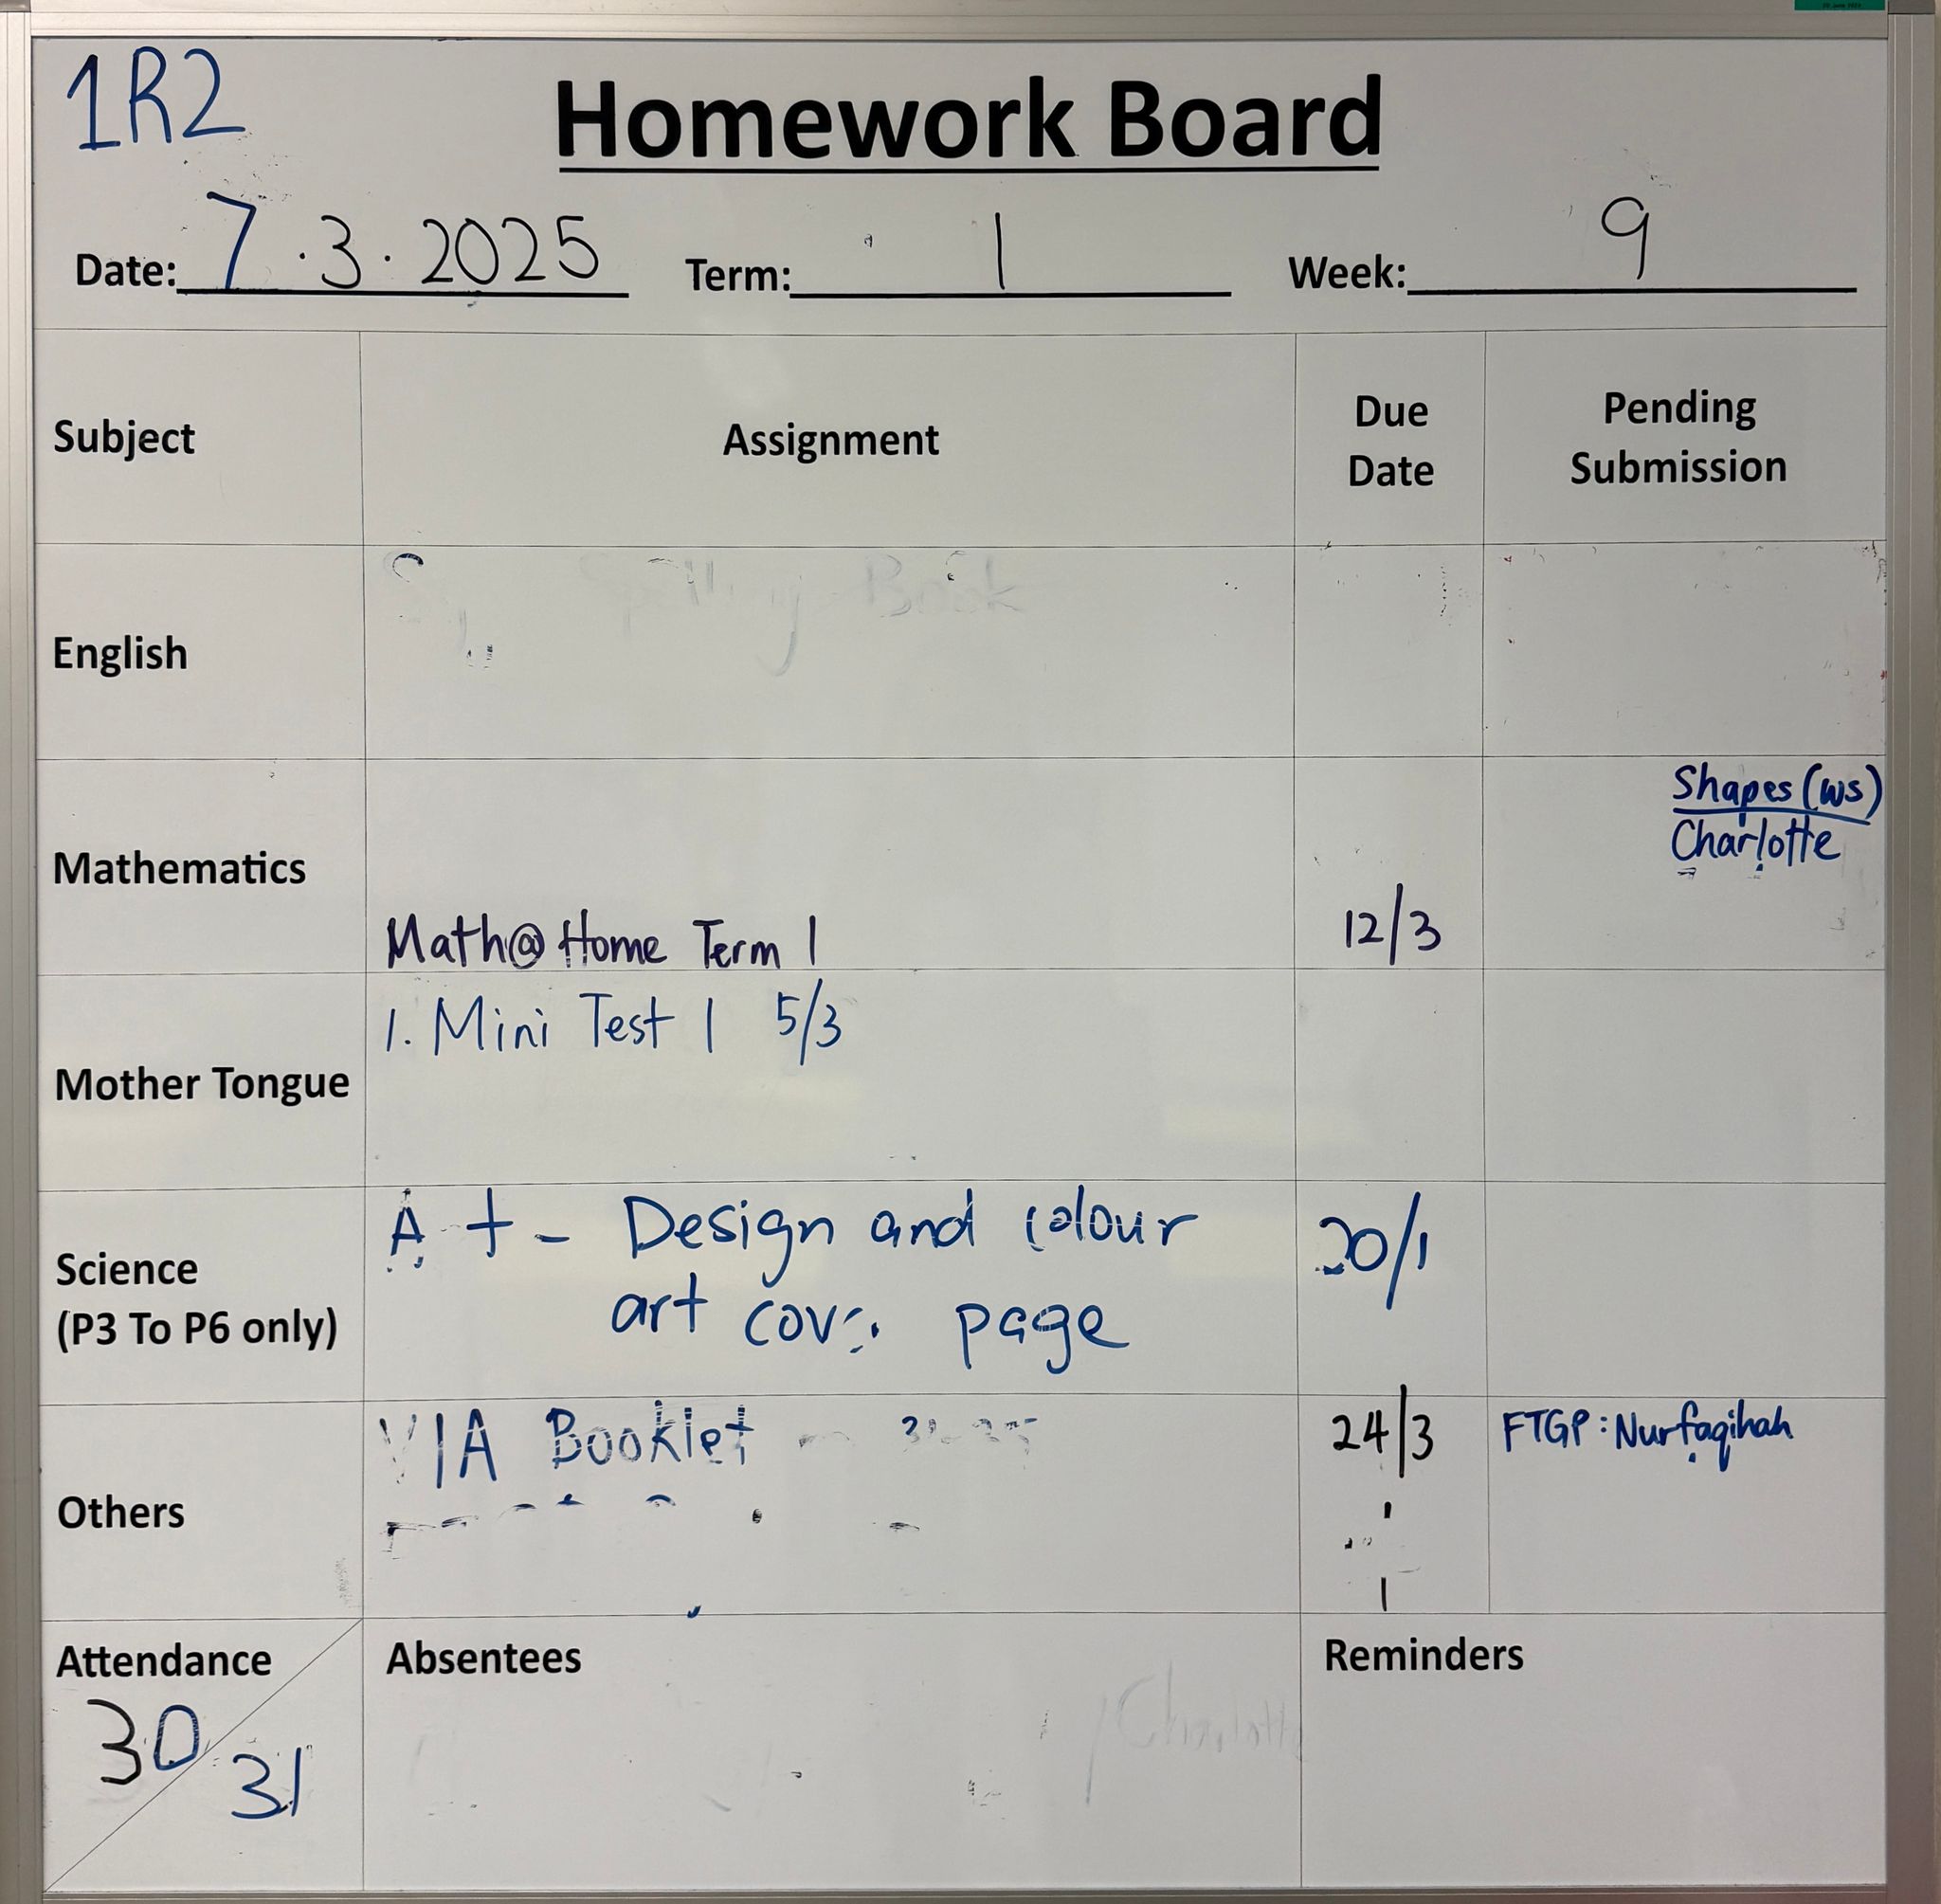 1R2
Homework Board
Date: 7.3.2025 Term: 1 Week: 9
Subject Assignment Due Date Pending Submission
English
Mathematics
Shapes (ws)
Charlotte
Math@Home Term 1 12/3
Mother Tongue
1. Mini Test 1 5/3
Science
(P3 To P6 only)
A t - Design and colour
art page
20/1
Others
VIA Booklet 24/3 FTGP: Nurfaqihah
Attendance Absentees Reminders
30
31
Charlotte